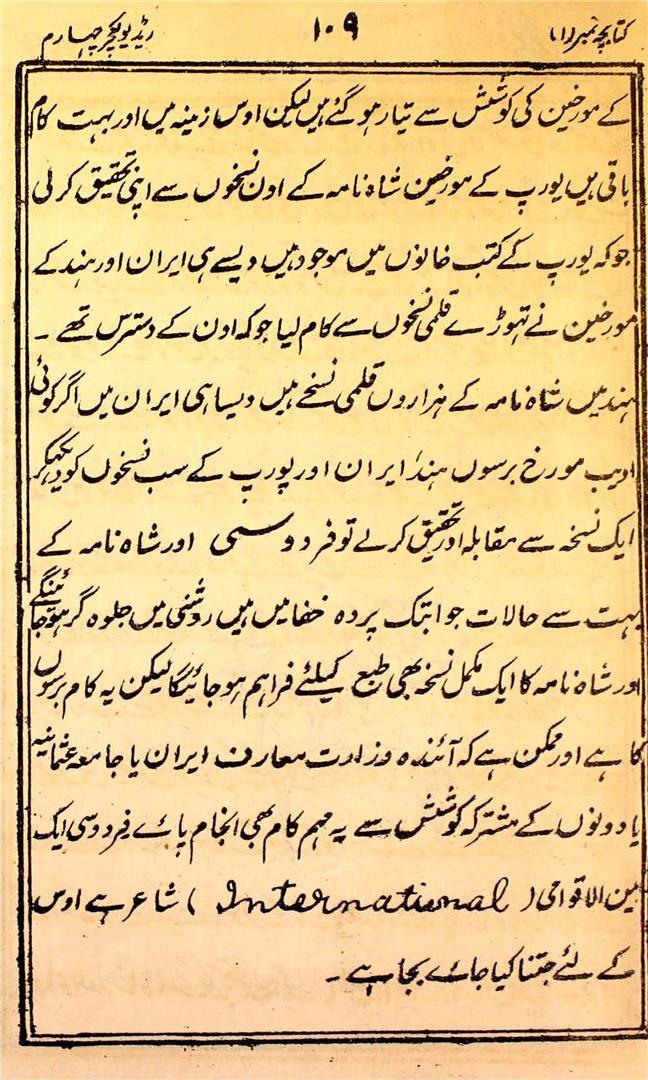 کتابچہ نمبر (۱) ۱۰۹ ریڈیو لکچر چہارم
کے مورخین کی کوشش سے تیار ہو گئے ہیں لیکن اوس زمینہ میں اور بہت کام
باقی ہیں یورپ کے مورخین شاہ نامہ کے اون نسخوں سے اپنی تحقیق کر لی
جو کہ یورپ کے کتب خانوں میں موجود ہیں ویسے ہی ایران اور ہند کے
مورخین نے تہوڑے قلمی نسخوں سے کام لیا جو کہ اون کے دسترس تھے ۔
ہند میں شاہ نامہ کے ہزاروں قلمی نسخے ہیں ویسا ہی ایران میں اگر کوئی
ادیب مورخ برسوں ہند ایران اور یورپ کے سب نسخوں کو دیکھکر
ایک نسخہ سے مقابلہ اور تحقیق کرلے تو فردوسی اور شاہ نامہ کے
بہت سے حالات جو ابتک پردہ خفا میں ہیں روشنی میں جلوہ گر ہو جائینگے
اور شاہ نامہ کا ایک مکمل نسخہ بھی طبع کیلئے فراہم ہو جائیگا لیکن یہ کام برسوں
کا ہے اور ممکن ہے کہ آئندہ وزارت معارف ایران یا جامعہ عثمانیہ
یا دونوں کے مشترکہ کوشش سے یہ مہم کام بھی انجام پائے فردوسی ایک
بین الاقوامی ( International ) شاعر ہے اوس
کے لئے جتنا کیا جائے بجا ہے ۔